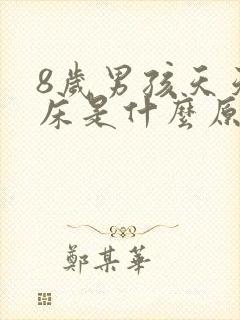 8歲男孩天天
床是什麼原
鄭某華